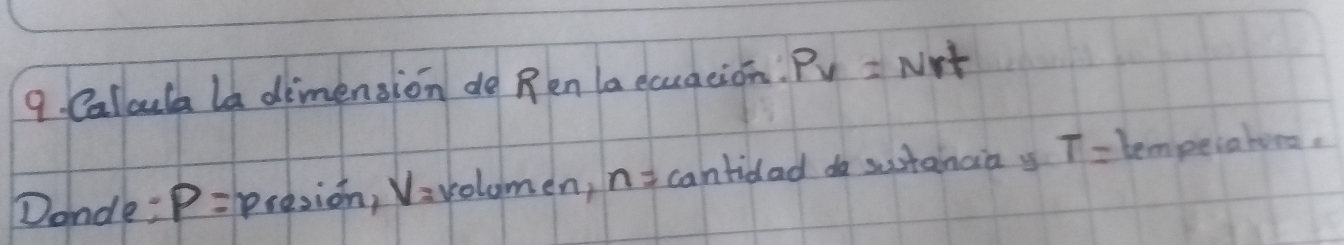 9. Calcula la dimensión de R en la ecuación: Pv = Nrt
Donde: P = presión, V = volumen, n = cantidad de sustancia y T = temperatura.